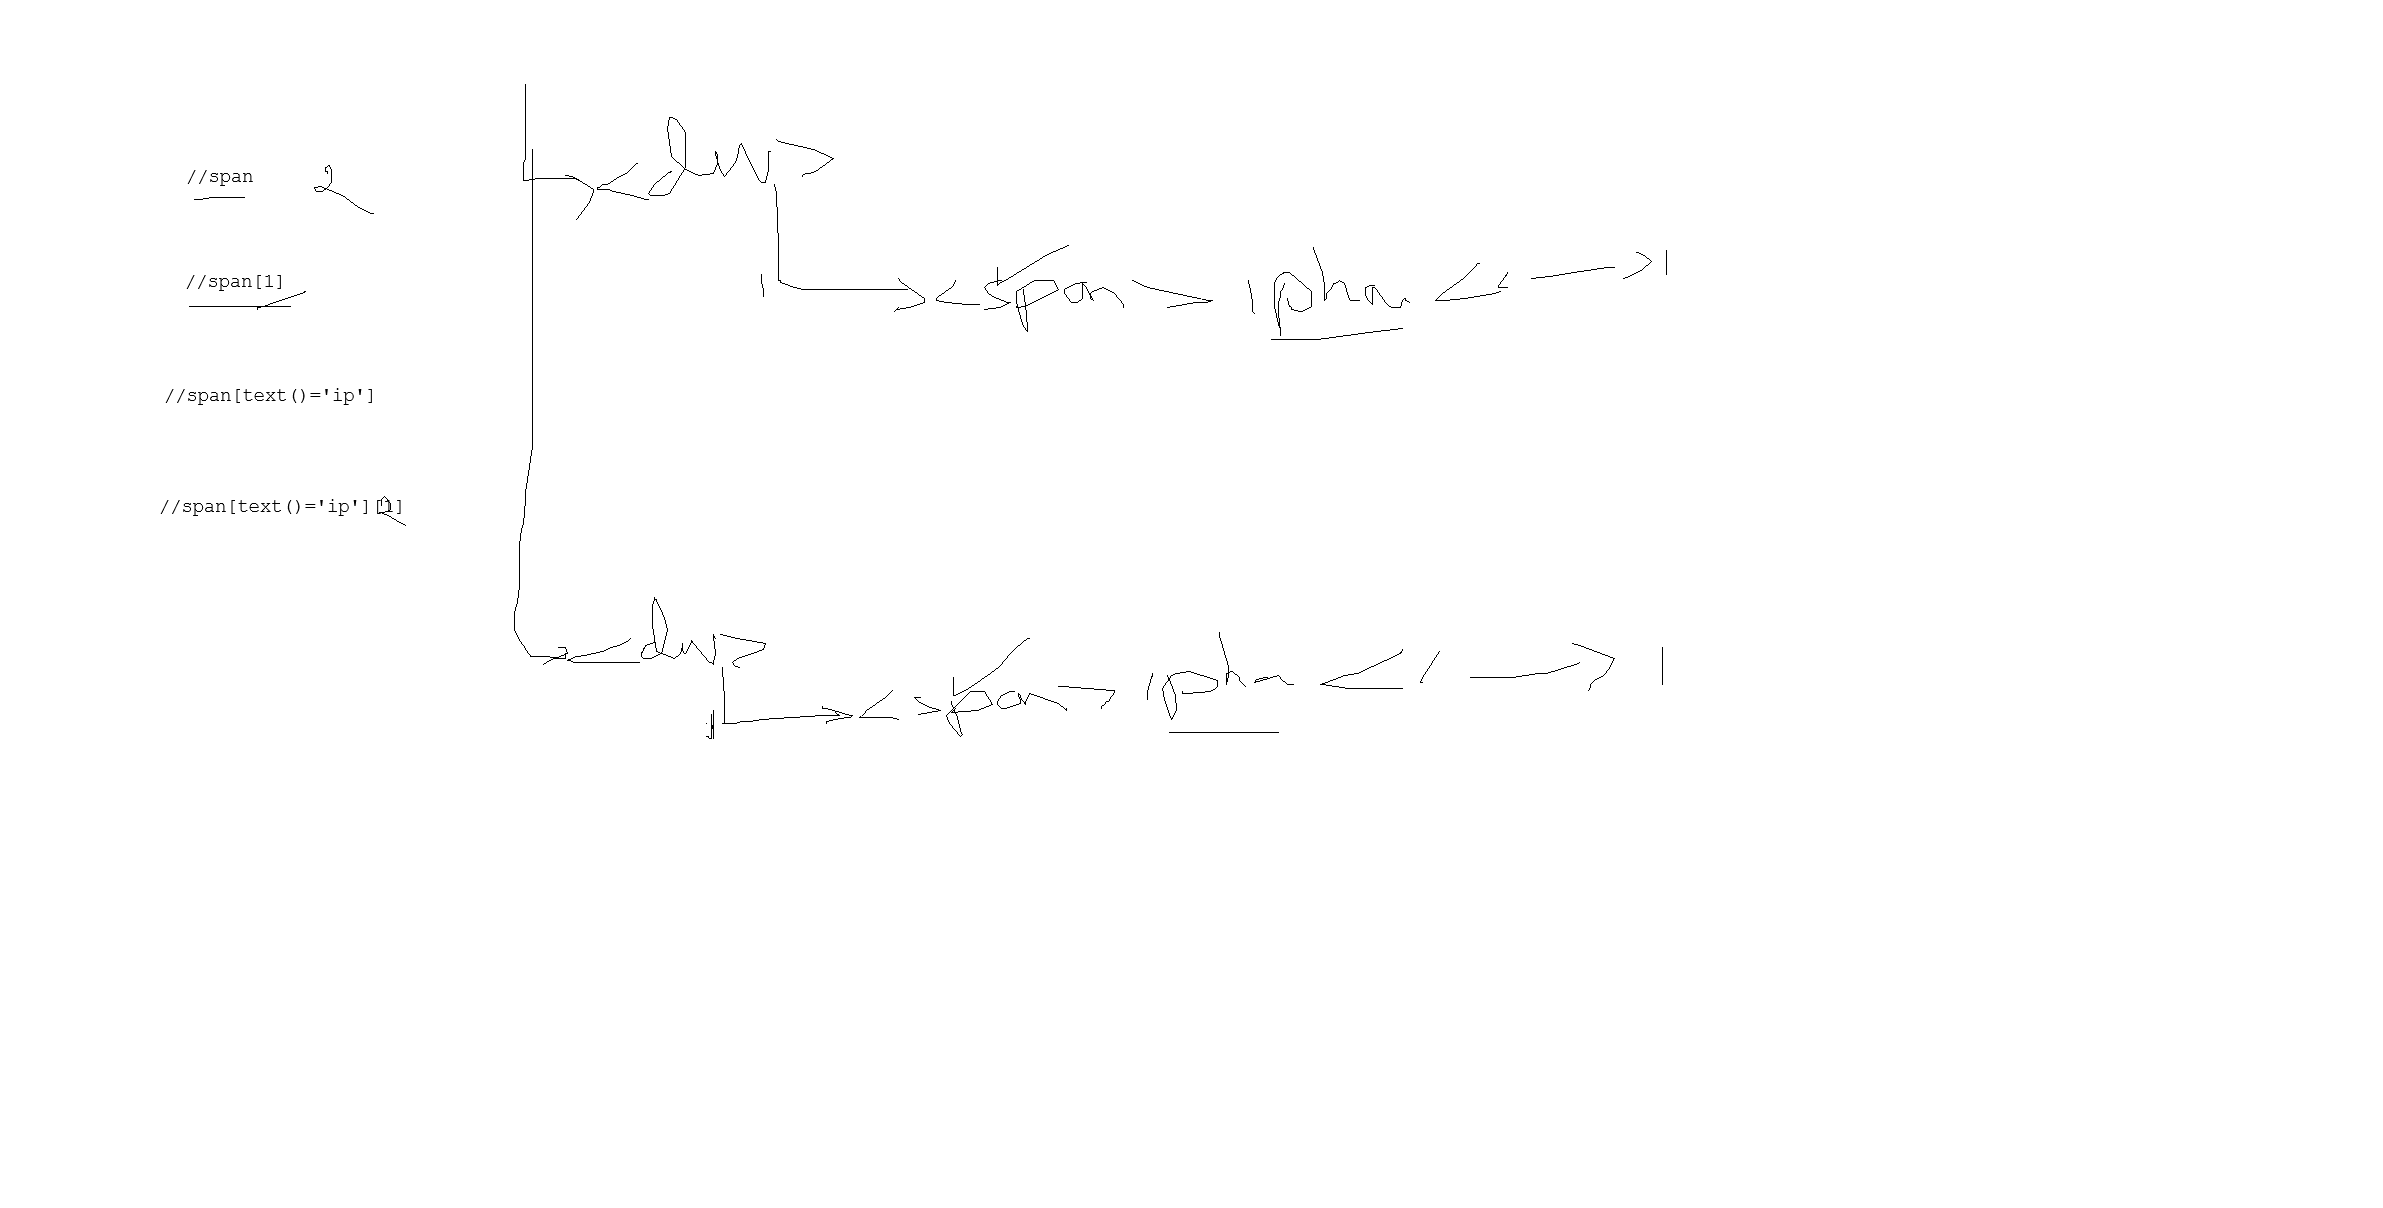 //span 2
//span[1]
//span[text()='ip']
//span[text()='ip'][1]
<div>
<span> iphn </ 1
<div>
<span> iphn </ 1